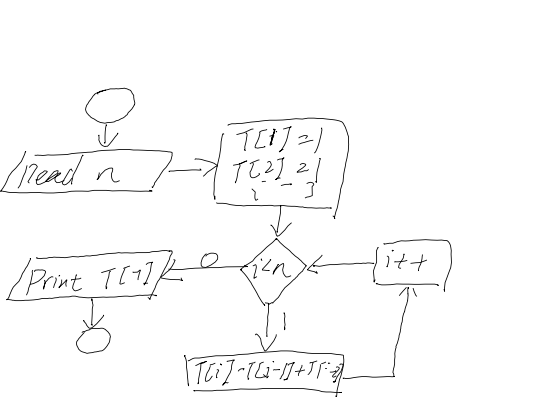 Read n
T[1]=1
T[2] 2 1
i - 3
i<n
0
1
i++
Print T[-1]
T[i]-T[i-1]+T[i-2]